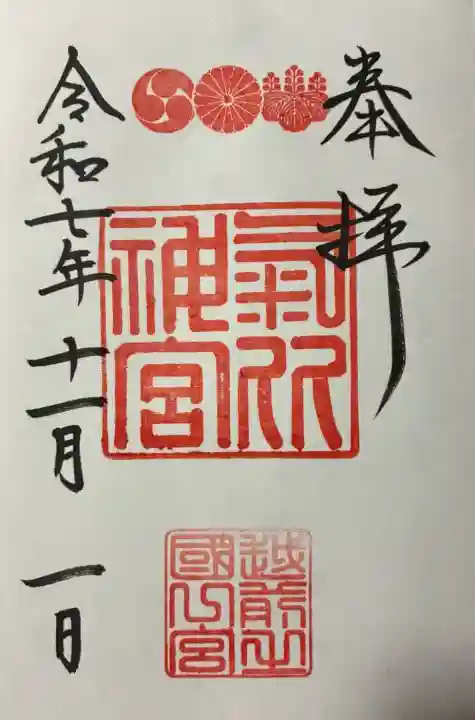 奉拝
氣比
神宮
越前之
國一宮
令和七年十一月一日